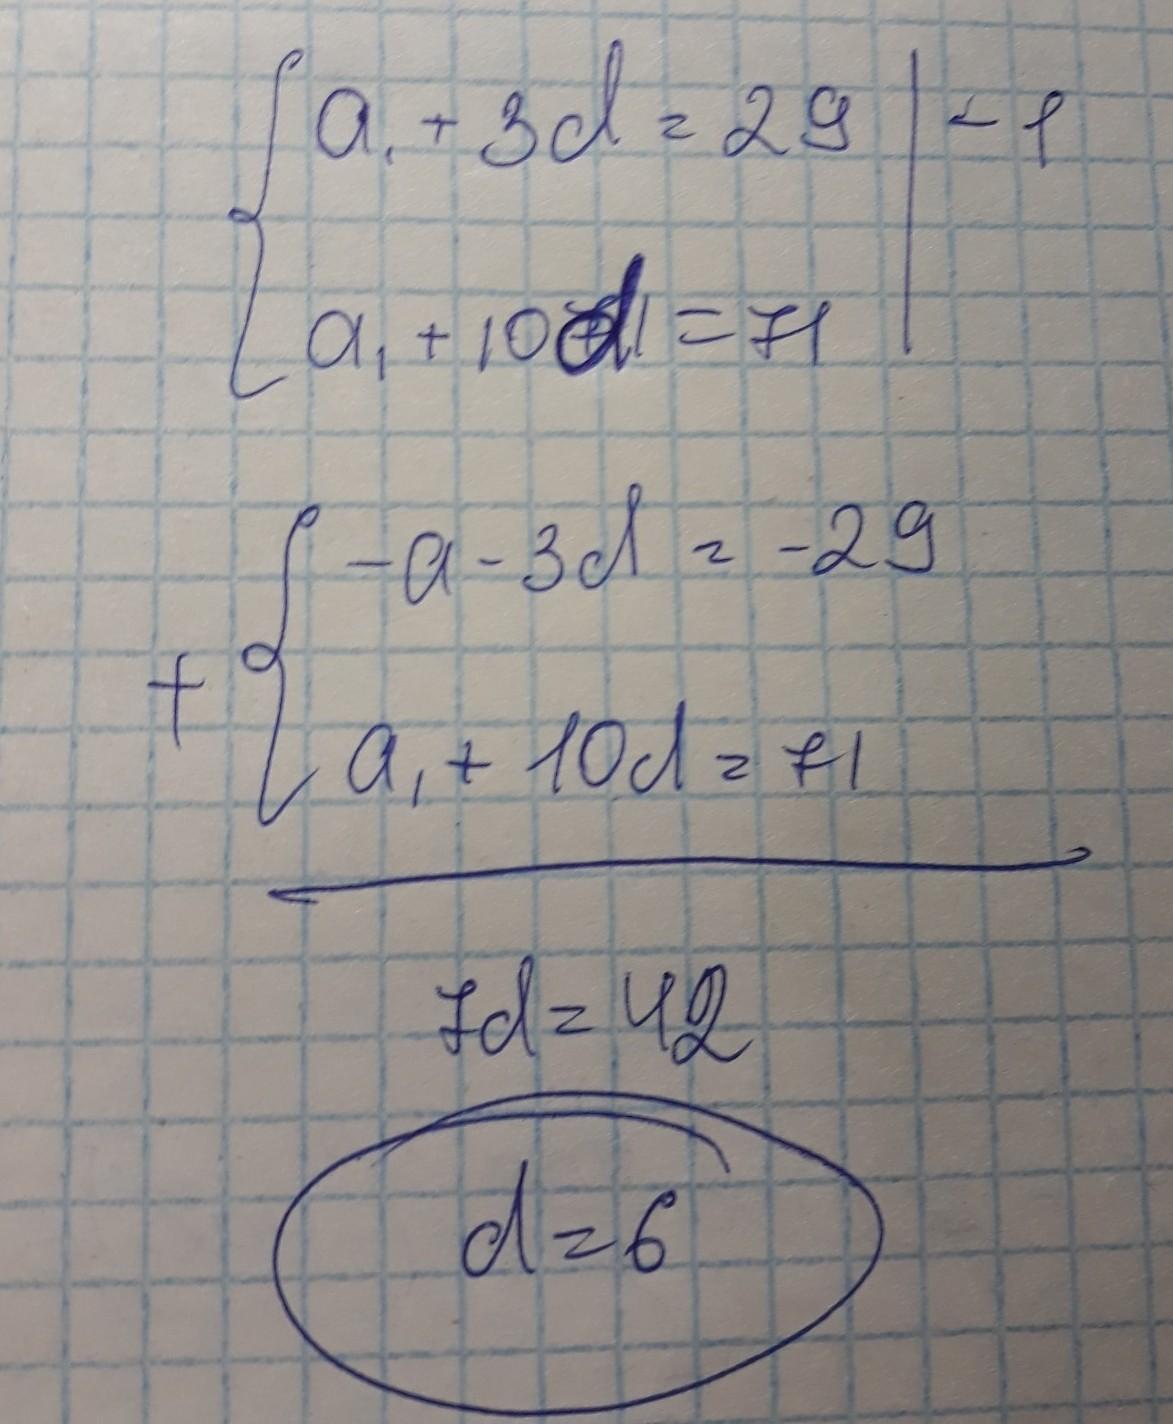 a₁ + 3d = 29 | -1
a₁ + 10d = 71
-a - 3d = -29
+
a₁ + 10d = 71
7d = 42
d = 6